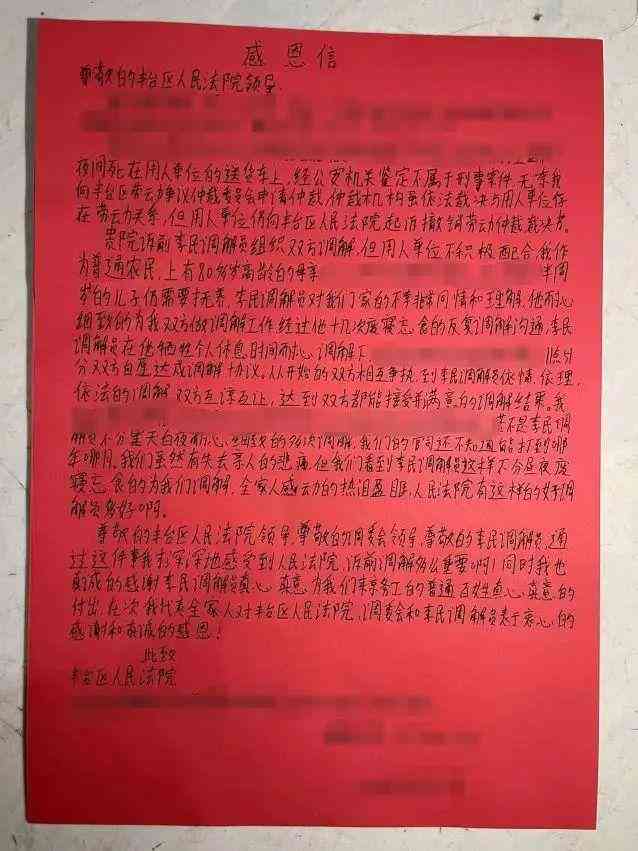 感恩信
尊敬的丰台区人民法院领导
夜间死在用人单位的送货车上,经公安机关鉴定不属于刑事案件,无奈我
向丰台区劳动争议仲裁委员会申请仲裁,仲裁机构虽依法裁决与用人单位存
在劳动关系,但用人单位仍向丰台区人民法院起诉撤销劳动仲裁裁决书。
贵院诉前李民调解员组织双方调解,但用人单位不积极配合,我作
为普通农民,上有80多岁高龄的母亲 半周
岁的儿子仍需要抚养,李民调解员对我们家的不幸非常同情和理解,他耐心
细致的为我双方做调解工作,经过他十几次废寝忘食的反复调解沟通,李民
调解员在他牺牲个人休息时间耐心调解下 点51
分双方自愿达成调解协议。从开始的双方相互争执,到李民调解员依情、依理、
依法的调解,双方互谅互让,达到双方都能接受和满意的调解结果。我
若不是李民调
解员不分星天白夜耐心 的多次调解,我们的官司还不知道能打到哪
年哪月。我们虽然有失去亲人的悲痛,但我们看到李民调解员这样不分昼夜废
寝忘食的为我们调解,全家人感动的热泪盈眶,人民法院有这样的好调
解员真好啊。
尊敬的丰台区人民法院领导,尊敬的调委会领导,尊敬的李民调解员,通
过这件事我深深地感受到人民法院,诉前调解多么重要啊!同时我也
真诚的感谢李民调解员真心、真意为我们来京务工的普通百姓真心、真意的
付出,在次我代表全家人对丰台区人民法院、调委会和李民调解员表于衷心的
感谢和真诚的感恩!
此致
丰台区人民法院